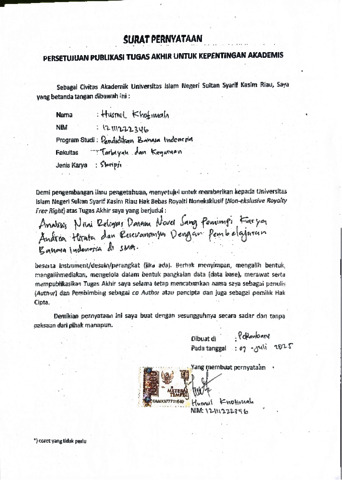 SURAT PERNYATAAN
PERSETUJUAN PUBLIKASI TUGAS AKHIR UNTUK KEPENTINGAN AKADEMIS
Sebagai Civitas Akademik Universitas Islam Negeri Sultan Syarif Kasim Riau, Saya
yang betanda tangan dibawah ini :
Nama : Husnul Khotimah
NIM : 12111222346
Program Studi : Pendidikan Bahasa Indonesia
Fakultas : Tarbiyah dan Keguruan
Jenis Karya : Skripsi
Demi pengembangan ilmu pengetahuan, menyetujui untuk memberikan kepada Universitas
Islam Negeri Sultan Syarif Kasim Riau Hak Bebas Royalti Noneksklusif (Non-ekslusive Royalty
Free Right) atas Tugas Akhir saya yang berjudul :
Analisis Nilai Religius Dalam Novel Sang Pemimpi Karya
Andrea Hirata dan Relevansinya Dengan Pembelajaran
Bahasa Indonesia di SMA.
beserta instrument/desain/perangkat (jika ada). Berhak menyimpan, mengalih bentuk,
mengalihmediakan, mengelola dalam bentuk pangkalan data (data base), merawat serta
mempublikasikan Tugas Akhir saya selama tetap mencatumkan nama saya sebagai penulis
(Author) dan Pembimbing sebagai co Author atau pencipta dan juga sebagai pemilik Hak
Cipta.
Demikian pernyataan ini saya buat dengan sesungguhnya secara sadar dan tanpa
paksaan dari pihak manapun.
Dibuat di : Pekanbaru
Pada tanggal : 07 Juli 2025
Yang membuat pernyataan
METERAI
TEMPEL
Husnul Khotimah
NIM: 12111222346
*) coret yang tidak perlu